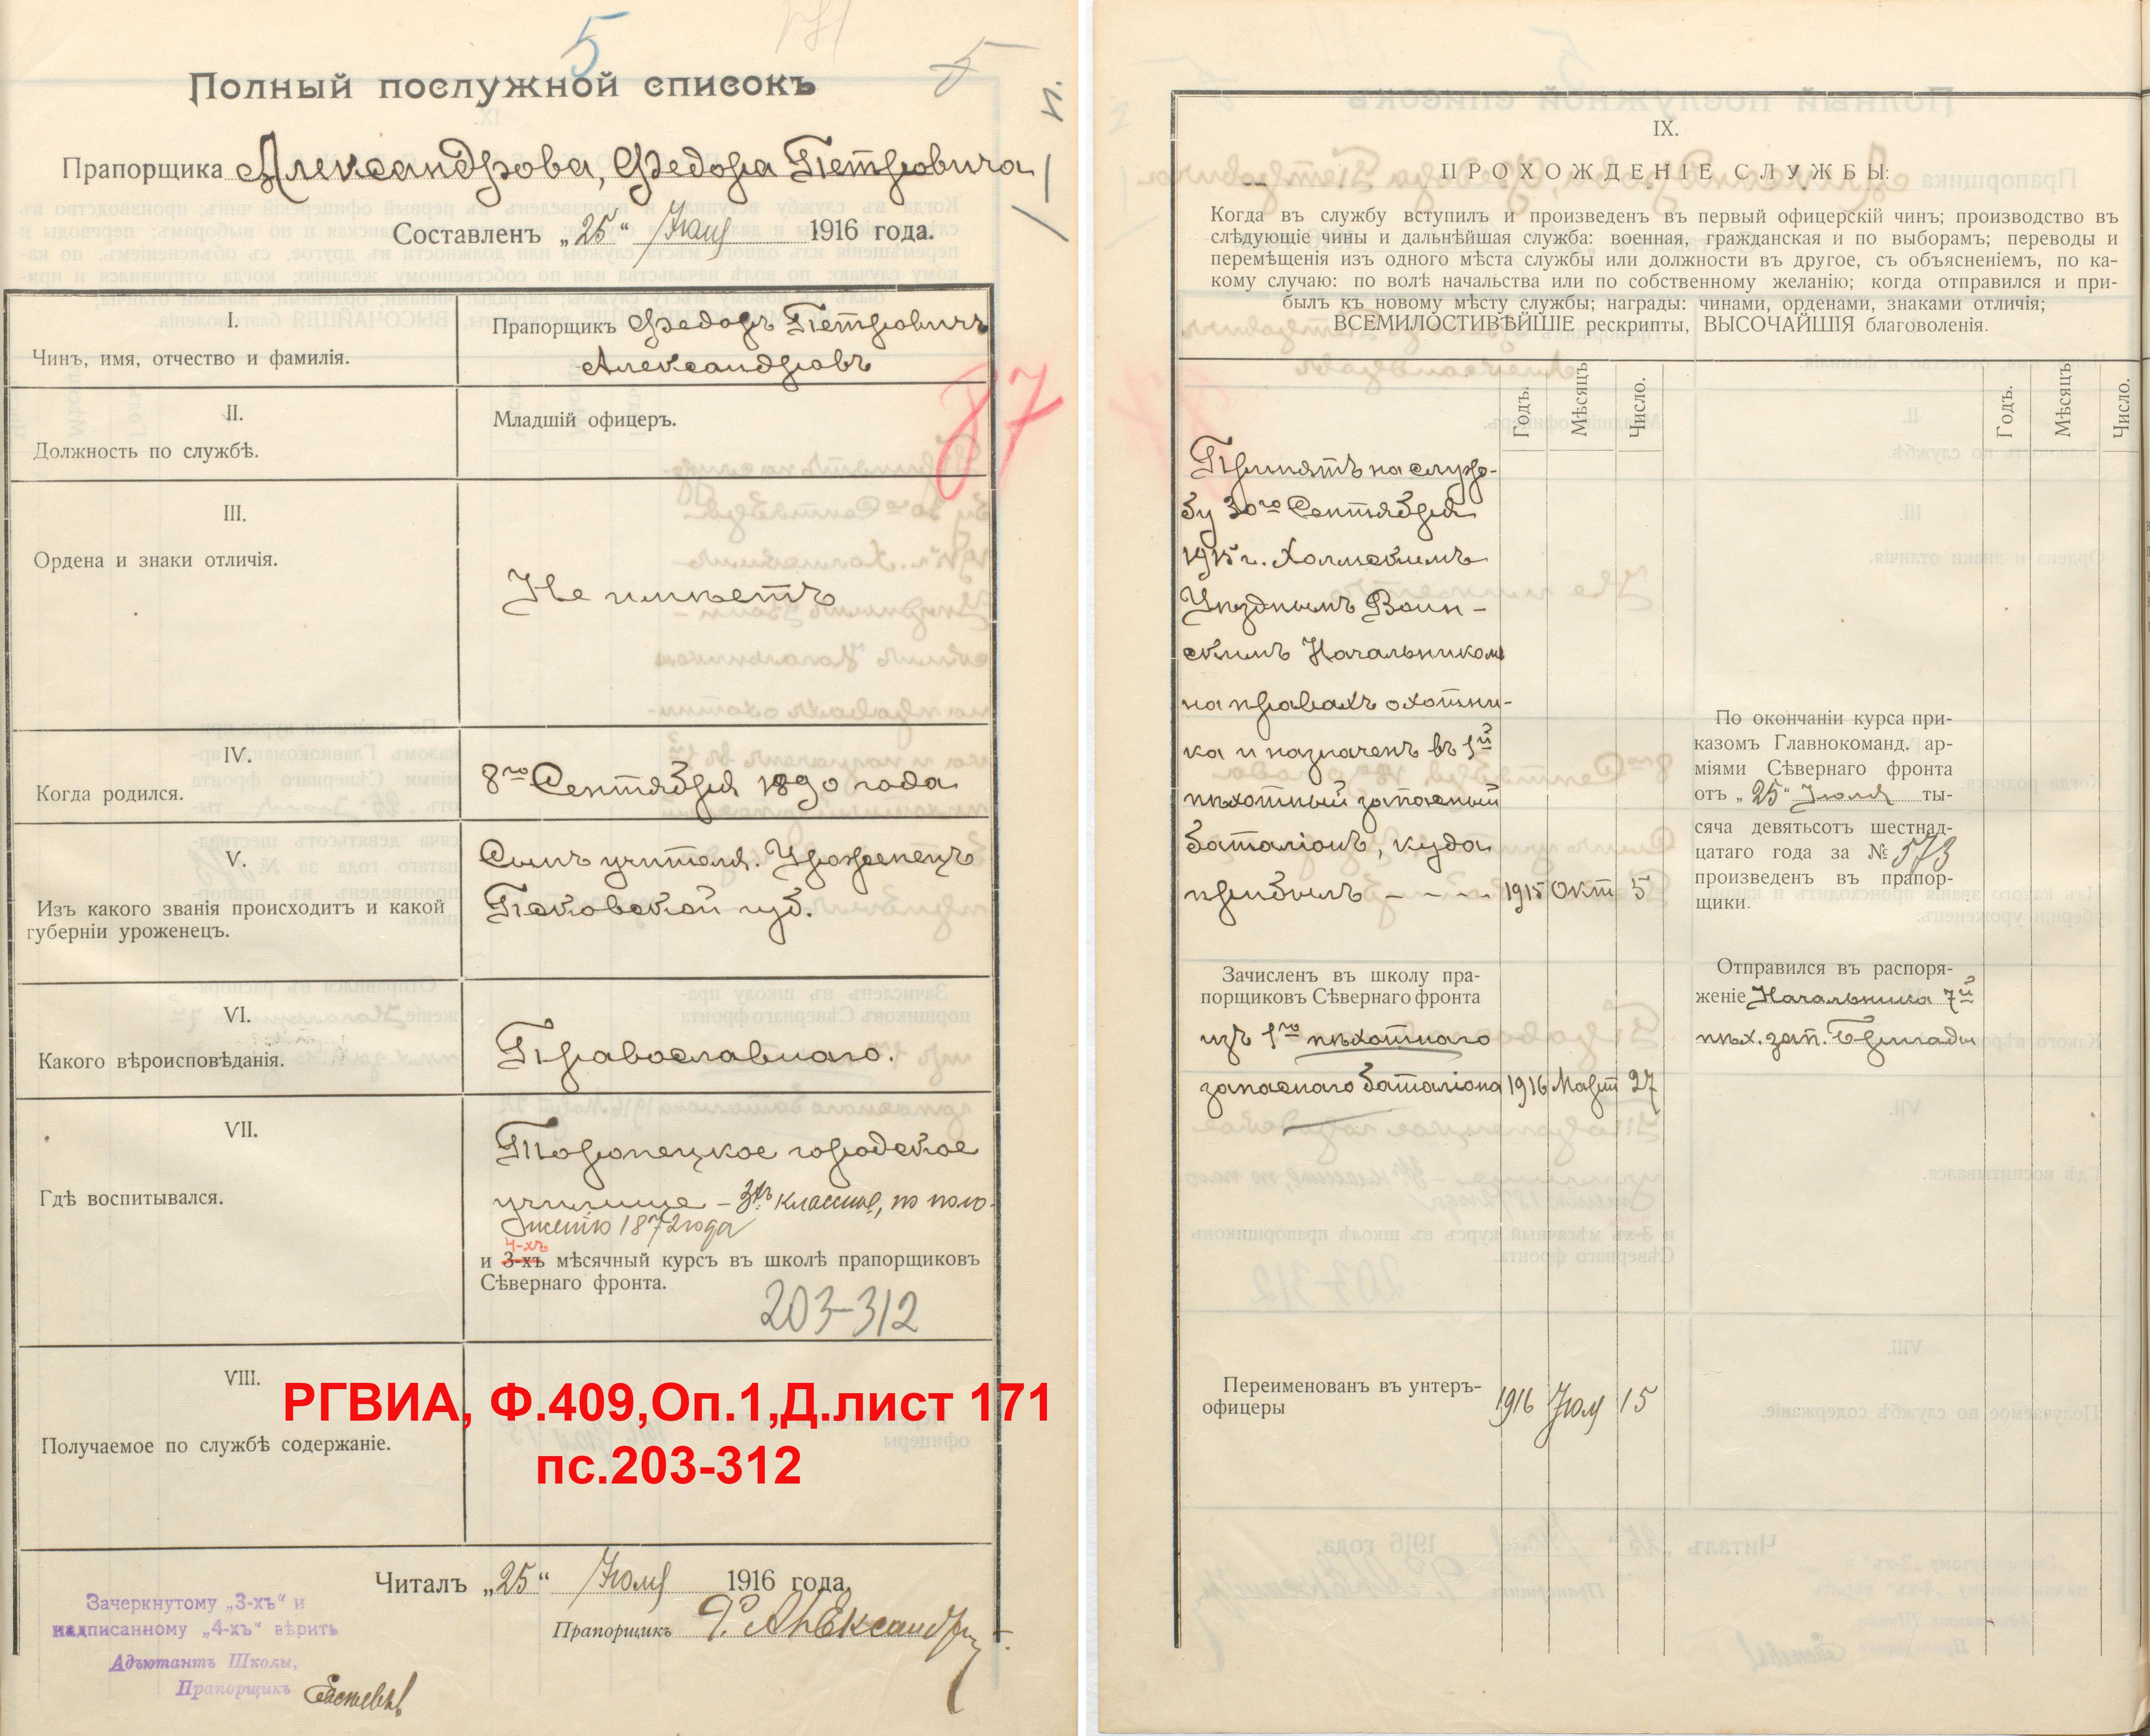 5
171
5
Полный послужной списокъ
Прапорщика Александрова, Федора Петровича
Составленъ „25“ Іюля 1916 года.
I.
Чинъ, имя, отчество и фамилія.
Прапорщикъ Федоръ Петровичъ
Александровъ
87
II.
Должность по службѣ.
Младшій офицеръ.
III.
Ордена и знаки отличія.
Не имѣетъ
IV.
Когда родился.
8го Сентября 1890 года
V.
Изъ какого званія происходитъ и какой
губерніи уроженецъ.
Сынъ учителя. Уроженецъ
Псковской губ.
VI.
Какого вѣроисповѣданія.
Православнаго.
VII.
Гдѣ воспитывался.
Торопецкое городское
училище – 3хъ классное, по поло-
женію 1872 года
4-хъ
и 3-хъ мѣсячный курсъ въ школѣ прапорщиковъ
Сѣвернаго фронта.
203-312
VIII.
Получаемое по службѣ содержаніе.
РГВИА, Ф.409,Оп.1,Д.лист 171
пс.203-312
Читалъ „25“ Іюля 1916 года.
Прапорщикъ Ф. Александров
Зачеркнутому „3-хъ“ и
надписанному „4-хъ“ вѣрить
Адъютантъ Школы,
Прапорщикъ
IX.
ПРОХОЖДЕНІЕ СЛУЖБЫ:
Когда въ службу вступилъ и произведенъ въ первый офицерскій чинъ; производство въ
слѣдующіе чины и дальнѣйшая служба: военная, гражданская и по выборамъ; переводы и
перемѣщенія изъ одного мѣста службы или должности въ другое, съ объясненіемъ, по ка-
кому случаю: по волѣ начальства или по собственному желанію; когда отправился и при-
былъ къ новому мѣсту службы; награды: чинами, орденами, знаками отличія;
ВСЕМИЛОСТИВѢЙШІЕ рескрипты, ВЫСОЧАЙШІЯ благоволенія.
Годъ. Мѣсяцъ Число.
Годъ. Мѣсяцъ Число.
Принятъ на служ-
бу 30го Сентября
1915 г. Холмскимъ
Уѣзднымъ Воин-
скимъ Начальникомъ
на правахъ охотни-
ка и назначенъ въ 1й
пѣхотный запасный
баталіонъ, куда
прибылъ - - - - 1915 Окт 5
Зачисленъ въ школу пра-
порщиковъ Сѣвернаго фронта
изъ 1го пѣхотнаго
запаснаго баталіона 1916 Март 27
Переименованъ въ унтеръ-
офицеры 1916 Іюл 15
По окончаніи курса при-
казомъ Главнокоманд. ар-
міями Сѣвернаго фронта
отъ „25“ Іюля ты-
сяча девятьсотъ шестнад-
цатаго года за № 573
произведенъ въ прапор-
щики.
Отправился въ распоря-
женіе Начальника 7й
пѣх. зап. бригады